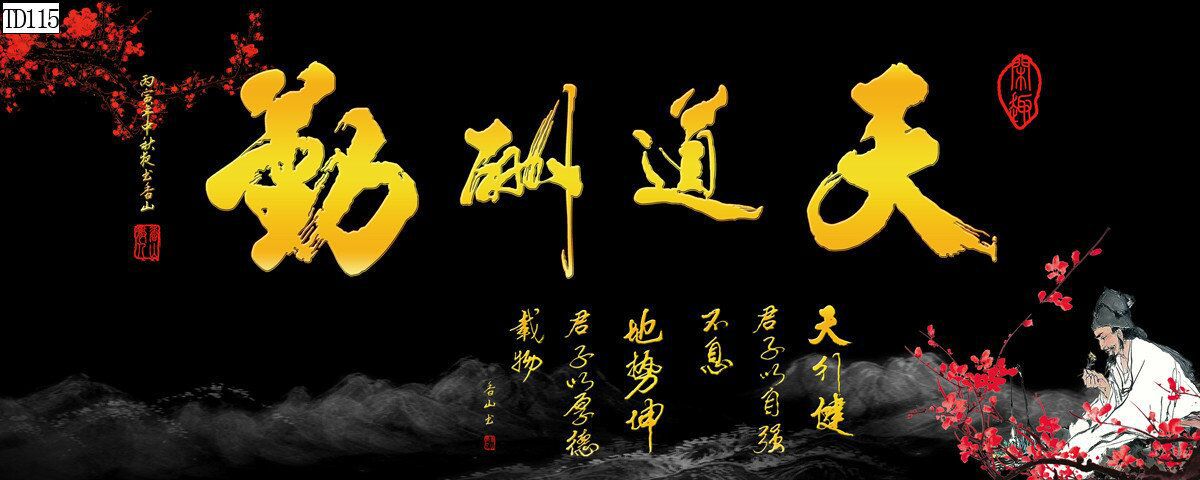 TD115
閑趣
天道酬勤
丙寅年中秋夜书香山
天行健
君子以自强
不息
地势坤
君子以厚德
载物
香山书